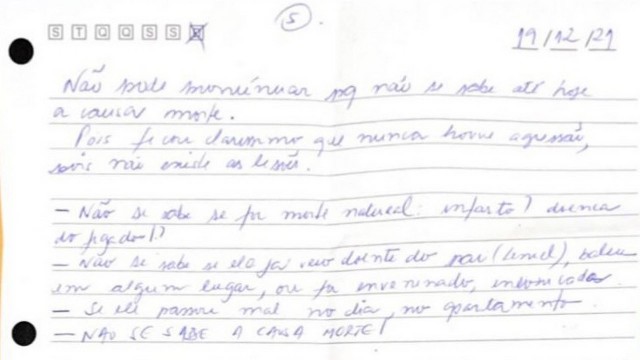 5.
S T Q Q S S D
19/12/21
Não pode pronunciar pq não se sabe até hoje
a causa morte.
Pois ficou claríssimo que nunca houve agressão,
pois não existe as lesões.
- Não se sabe se foi morte natural: infarto? doença
do fígado!?
- Não se sabe se ele já veio doente do pai (Leniel), bateu
em algum lugar, ou foi envenenado, intoxicado.
- Se ele passou mal no dia, no apartamento
- NÃO SE SABE A CAUSA MORTE!